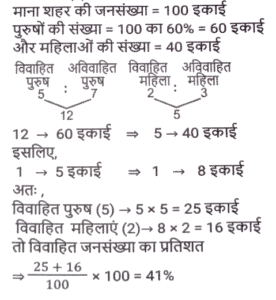 माना शहर की जनसंख्या = 100 इकाई
पुरुषों की संख्या = 100 का 60% = 60 इकाई
और महिलाओं की संख्या = 40 इकाई
विवाहित अविवाहित विवाहित अविवाहित
पुरुष : पुरुष महिला : महिला
5 7 2 3
12 5
12 → 60 इकाई ⇒ 5 → 40 इकाई
इसलिए,
1 → 5 इकाई ⇒ 1 → 8 इकाई
अतः ,
विवाहित पुरुष (5) → 5 × 5 = 25 इकाई
विवाहित महिलाएं (2)→ 8 × 2 = 16 इकाई
तो विवाहित जनसंख्या का प्रतिशत
⇒ 25 + 16 / 100 × 100 = 41%